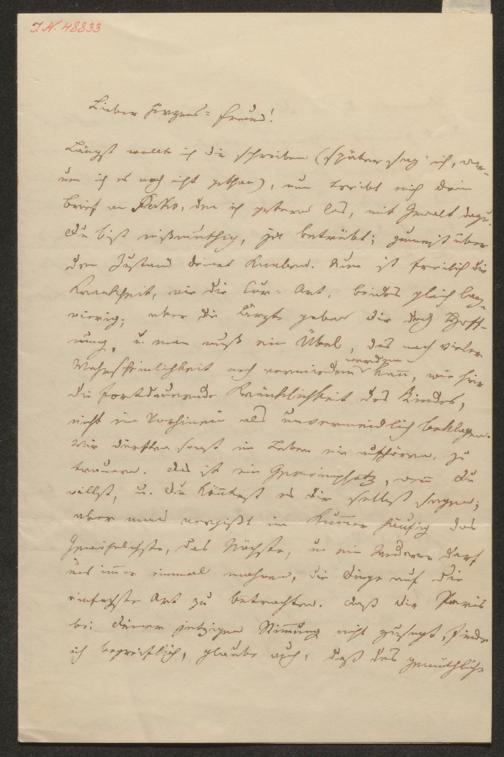 I.N. 48833
Lieber Herzens-Freund!
Längst wollte ich dir schreiben (später sag' ich, war-
um ich es noch nicht gethan), nun treibt mich dein
Brief an Fako, den ich gestern las, mit Gewalt dazu.
Du bist mißmuthig, ja betrübt; zumeist über
den Zustand deines Knaben. Nun ist freilich die
Krankheit, wie die Cur-Art, beides gleich lang-
wierig; aber die Ärzte geben dir doch Hoff-
nung, u. man muß ein Übel, das nach vieler
Wahrscheinlichkeit noch vermieden werden kann, wie hier
die fortdauernde Kränklichkeit des Kindes,
nicht im Vorhinein als unvermeidlich beklagen.
Wir dürften sonst im Leben nie aufhören, zu
trauern. Das ist ein Gemeinplatz, wenn du
willst, u. du könntest es dir selbst sagen;
aber man vergißt im Kummer häufig das
Zweifelloseste, das Nächste, u. ein Anderer darf
uns immer einmal mahnen, die Dinge auf die
einfachste Art zu betrachten. Daß dir Paris
bei deiner jetzigen Stimmung nicht zusagt, finde
ich begreiflich, glaube auch, daß das gemüthliche